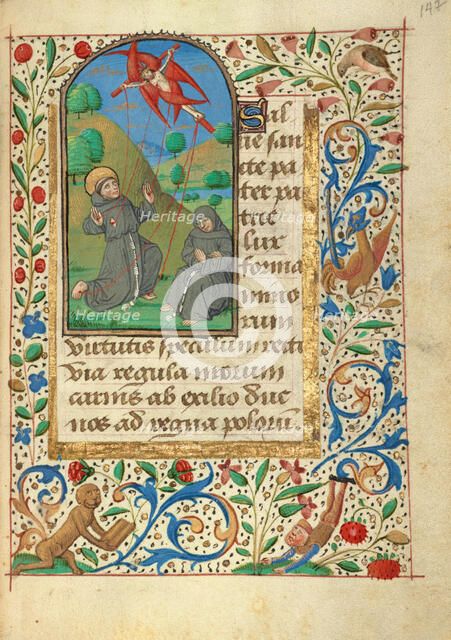 147
Sal
ue san
cte pa
ter pa
trie
lux
forma
mino
rum
Virtutis speculum recti
Via regula morum
carnis ab exilio duc
nos ad regna poloru.
Heritage
Heritage
Heritage
Heritage
Heritage
Heritage